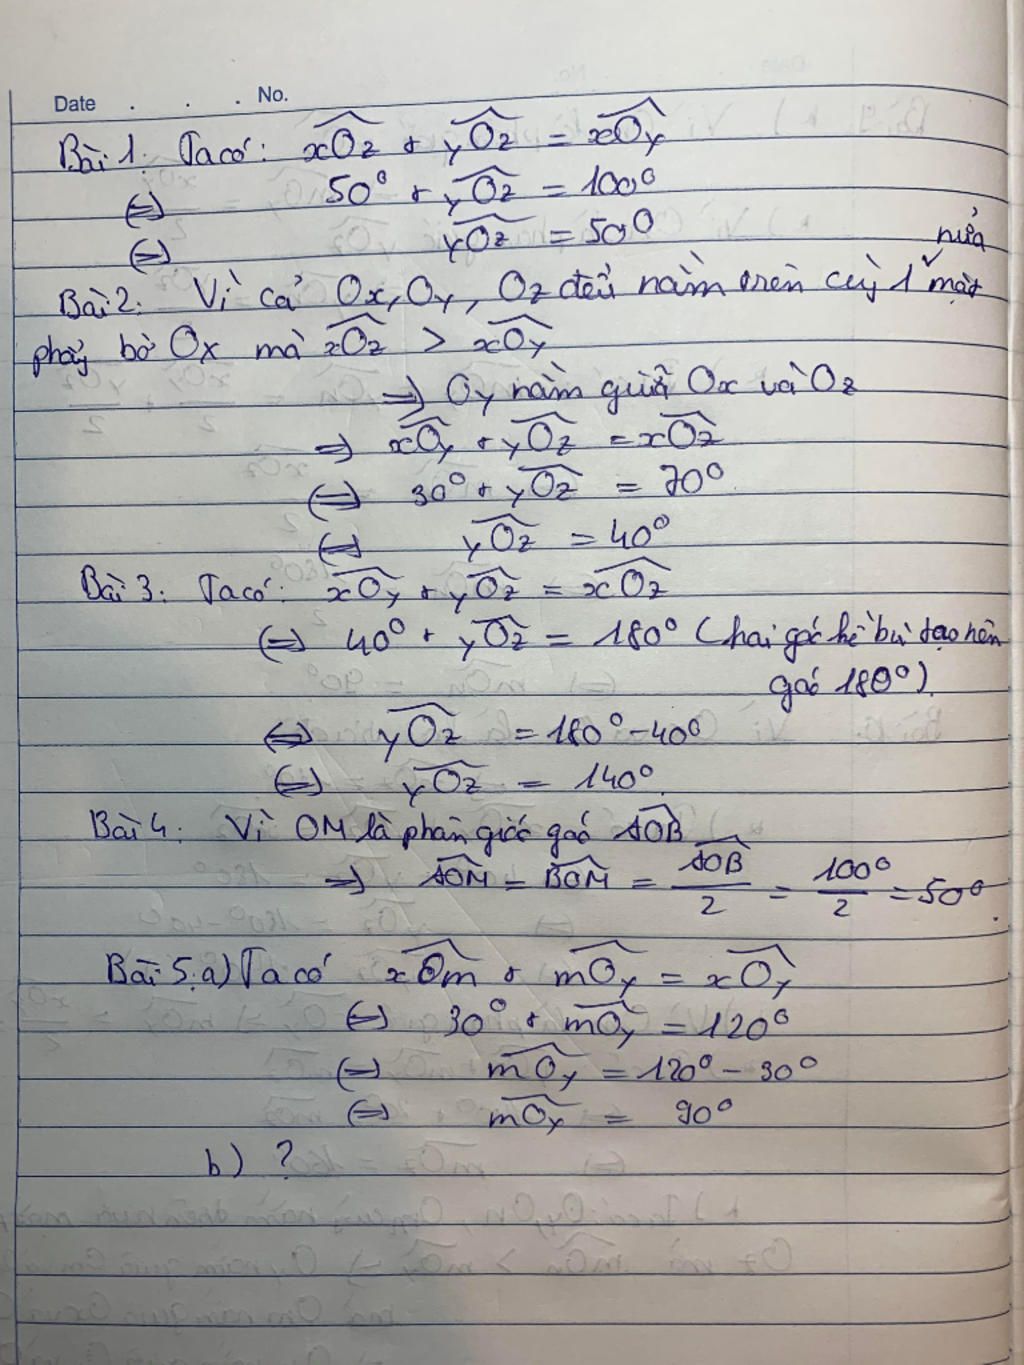 Date . . . No.
Bài 1: Ta có: xOz + yOz = xOy
(=) 50° + yOz = 100°
(=) yOz = 50°
nửa
Bài 2: Vì cả Ox, Oy, Oz đều nằm trên cùg 1 ˅ mặt
phẳg bờ Ox mà xOz > xOy
=> Oy nằm giữa Ox và Oz
=> xOy + yOz = xOz
(=) 30° + yOz = 70°
(=) yOz = 40°
Bài 3: Ta có: xOy + yOz = xOz
(=) 40° + yOz = 180° (hai góc kề bù tạo nên
góc 180°).
(=) yOz = 180° - 40°
(=) yOz = 140°
Bài 4: Vì OM là phân giác góc AOB
=> AOM = BOM = AOB/2 = 100°/2 = 50°.
Bài 5: a) Ta có xOm + mOy = xOy
(=) 30° + mOy = 120°
(=) mOy = 120° - 30°
(=) mOy = 90°
b) ?